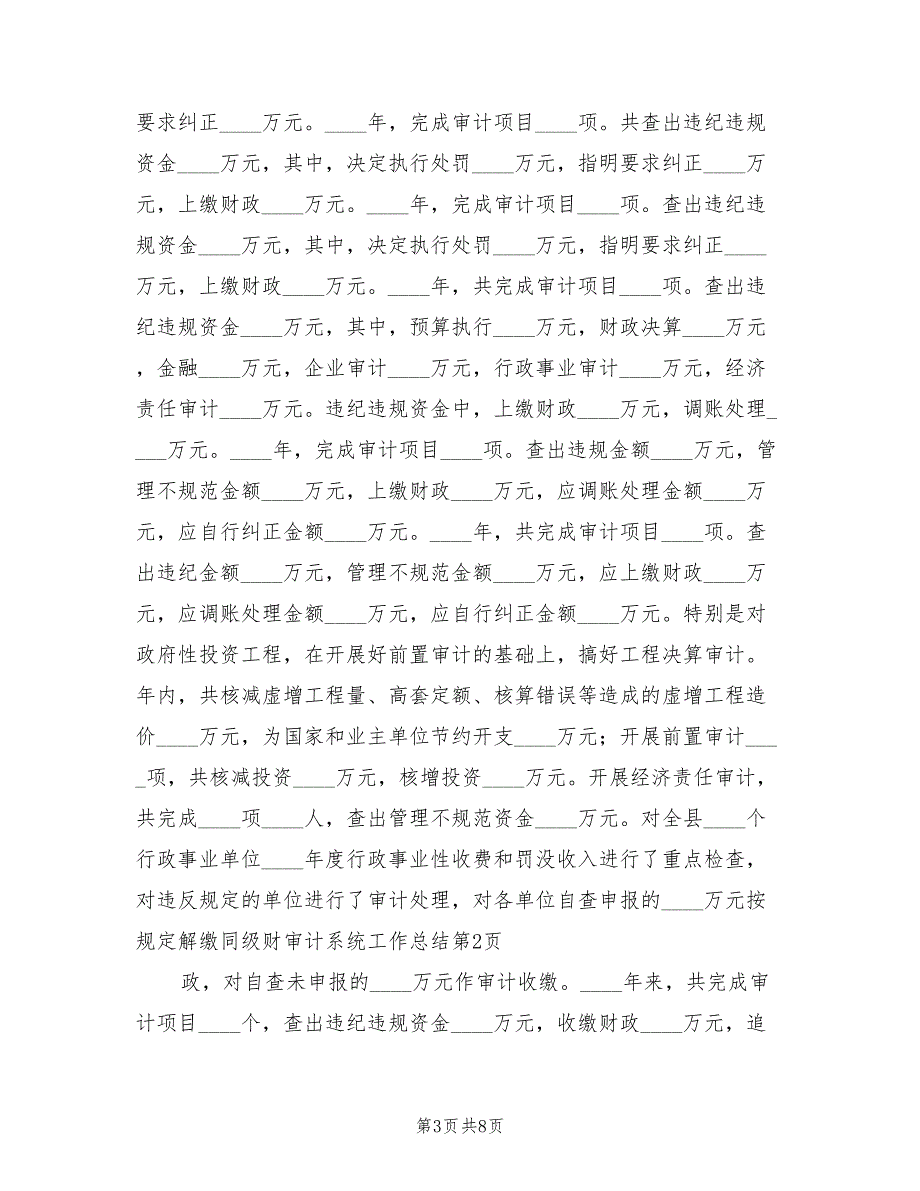 要求纠正____万元。____年，完成审计项目____项。共查出违纪违规
资金____万元，其中，决定执行处罚____万元，指明要求纠正____万
元，上缴财政____万元。____年，完成审计项目____项。查出违纪违
规资金____万元，其中，决定执行处罚____万元，指明要求纠正____
万元，上缴财政____万元。____年，共完成审计项目____项。查出违
纪违规资金____万元，其中，预算执行____万元，财政决算____万元
，金融____万元，企业审计____万元，行政事业审计____万元，经济
责任审计____万元。违纪违规资金中，上缴财政____万元，调账处理_
___万元。____年，完成审计项目____项。查出违规金额____万元，管
理不规范金额____万元，上缴财政____万元，应调账处理金额____万
元，应自行纠正金额____万元。____年，共完成审计项目____项。查
出违纪金额____万元，管理不规范金额____万元，应上缴财政____万
元，应调账处理金额____万元，应自行纠正金额____万元。特别是对
政府性投资工程，在开展好前置审计的基础上，搞好工程决算审计。
年内，共核减虚增工程量、高套定额、核算错误等造成的虚增工程造
价____万元，为国家和业主单位节约开支____万元；开展前置审计___
_项，共核减投资____万元，核增投资____万元。开展经济责任审计，
共完成____项____人，查出管理不规范资金____万元。对全县____个
行政事业单位____年度行政事业性收费和罚没收入进行了重点检查，
对违反规定的单位进行了审计处理，对各单位自查申报的____万元按
规定解缴同级财审计系统工作总结第2页
政，对自查未申报的____万元作审计收缴。____年来，共完成审
计项目____个，查出违纪违规资金____万元，收缴财政____万元，追
第3页 共8页